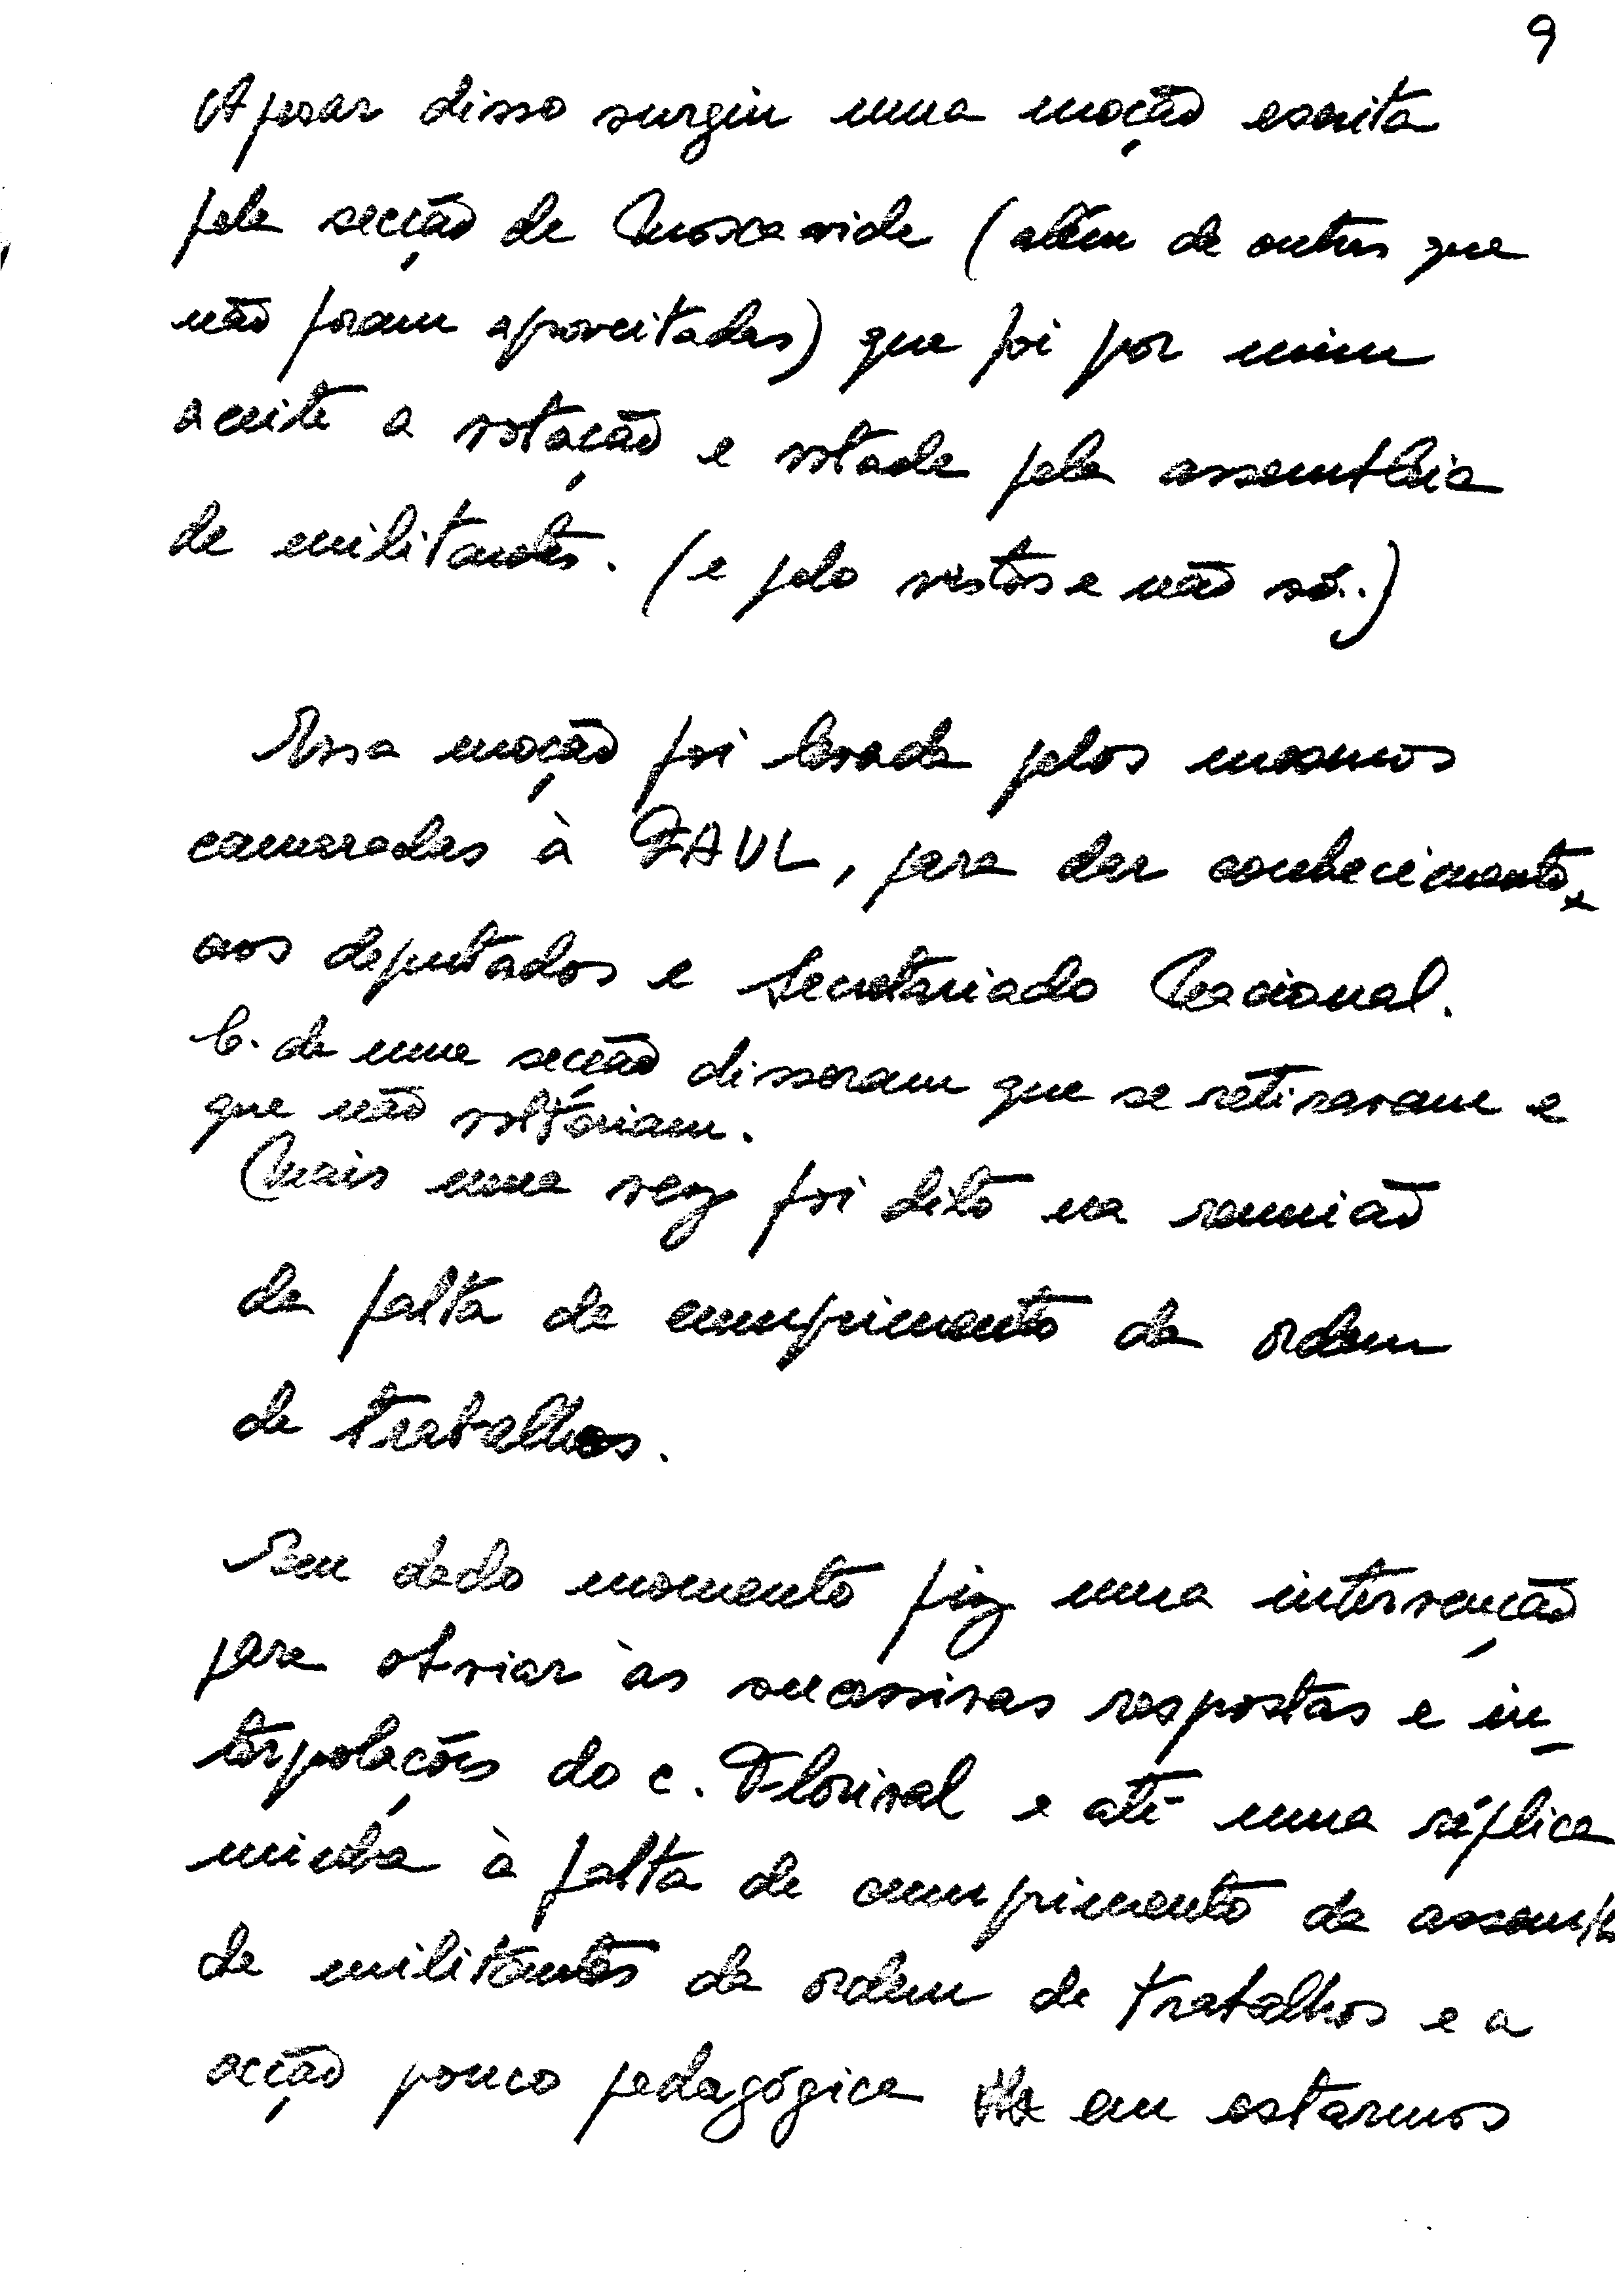 9
Apesar disso surgiu uma moção escrita
pela secção de Moscavide (além de outras que
não foram aproveitadas) que foi por mim
aceite a votação e votada pela assembleia
de militantes. (e pelo vistos e não só..)
Essa moção foi levada pelos mesmos
camaradas à FAUL, para dar conhecimento e
aos deputados e Secretariado Nacional.
C. de uma secção disseram que se retiravam e
que não voltariam.
Mais uma vez foi dito na reunião
da falta de cumprimento da ordem
de trabalhos.
Em dado momento fiz uma intervenção
para obviar às sucessivas respostas e in-
terpolações do c. Florival e até uma réplica
minha à falta de cumprimento da assemb
de militantes da ordem de trabalhos e a
acção pouco pedagógica em estarmos